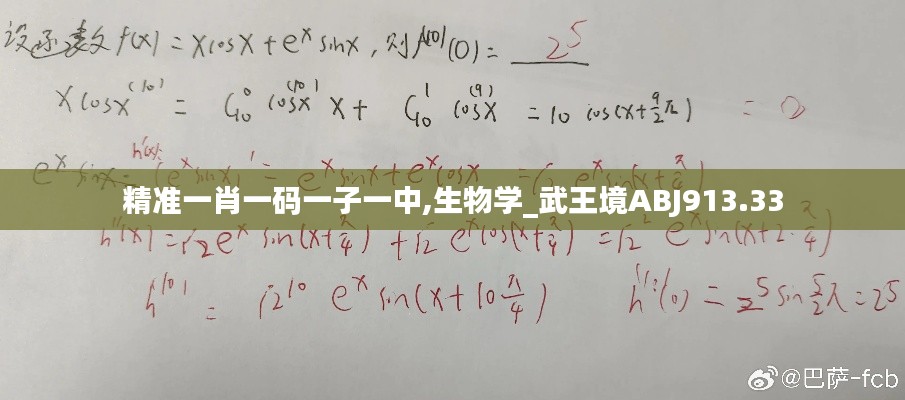 设函数 f(x) = xcosx + eˣ sinx , 则 f⁽¹⁰⁾(0) = 2⁵
xcosx⁽¹⁰⁾ = C₁₀⁰ cosx⁽¹⁰⁾ x + C₁₀¹ cosx⁽⁹⁾ = 10 cos(x+9/2π) = 0
eˣ sinx = eˣ sinx + eˣ cosx
精准一肖一码一子一中,生物学_武王境ABJ913.33
h''(x) = √2eˣ sin(x+π/4) + √2 eˣ cos(x+π/4) = √2² eˣ sin(x+2·π/4)
h⁽¹⁰⁾ = √2¹⁰ eˣ sin(x+10π/4) h⁽¹⁰⁾(0) = 2⁵ sin5/2π = 2⁵
@巴萨-fcb